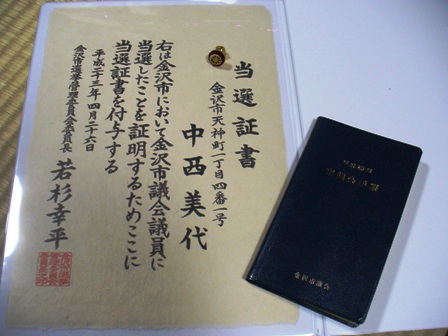 当選証書
金沢市天神町一丁目四番一号
中西美代
右は金沢市において金沢市議会議員に
当選したことを証明するためここに
当選証書を付与する
平成二十三年四月二十六日
金沢市選挙管理委員会委員長
若杉幸平
金沢市議会